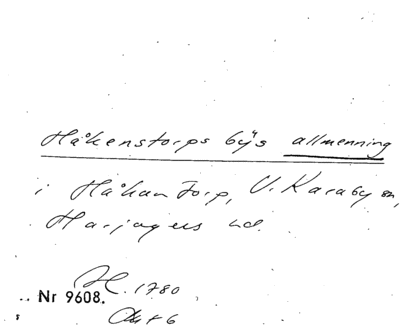 Håkenstorps bÿs allmenning
i Håkantorp, V. Karaby sn,
Harjagers hd.
H. 1780
Nr 9608.